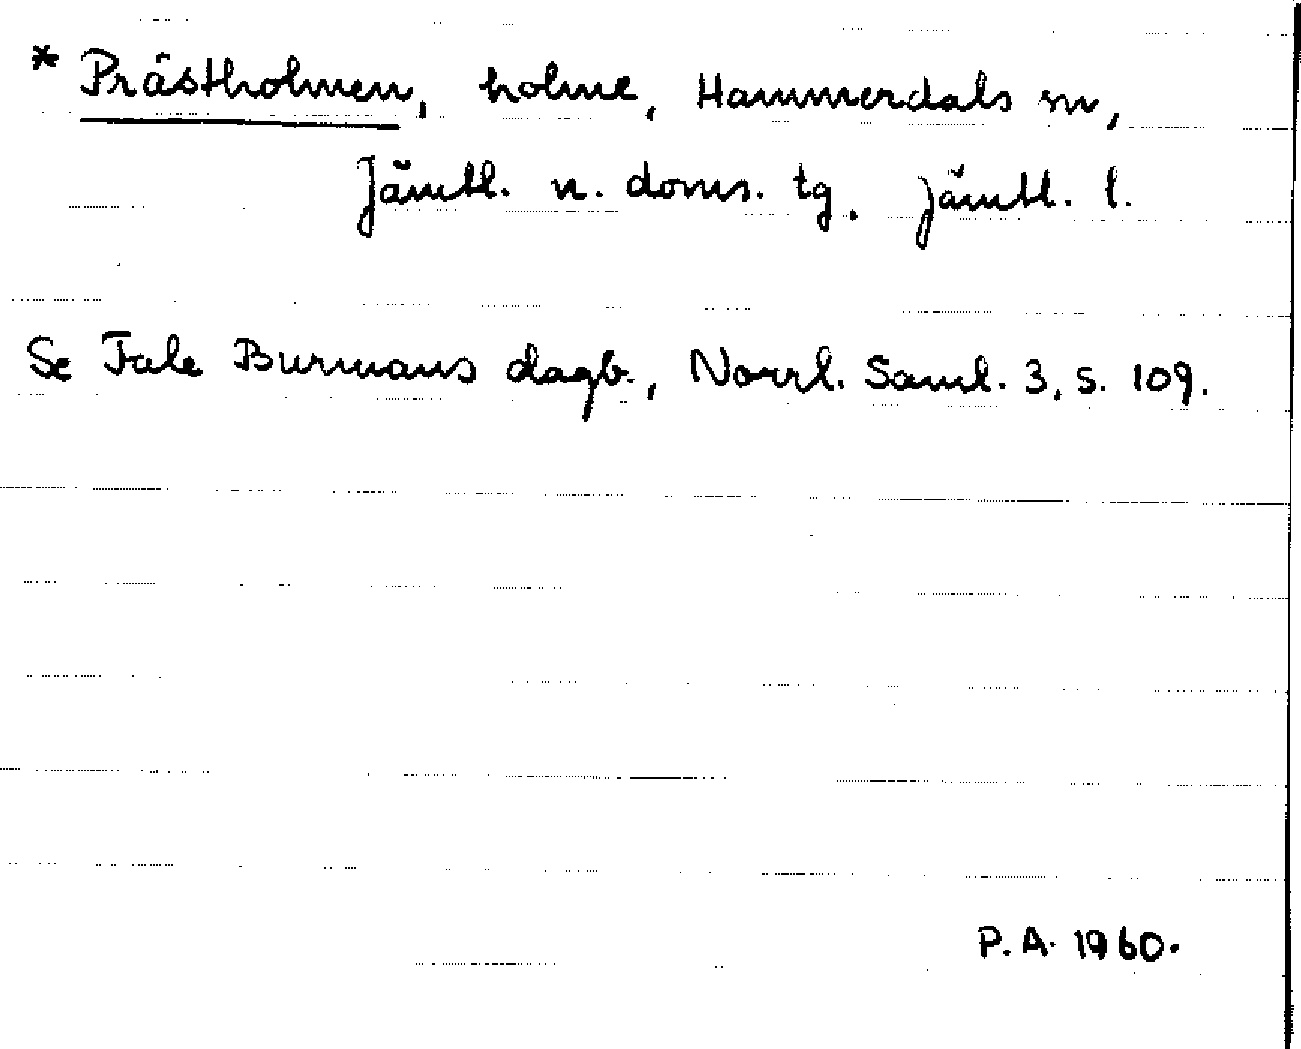 * Prästholmen, holme, Hammerdals sn,
Jämtl. n. doms. tg. Jämtl. l.
Se Fale Burmans dagb., Norrl. Saml. 3, s. 109.
P.A. 1960.